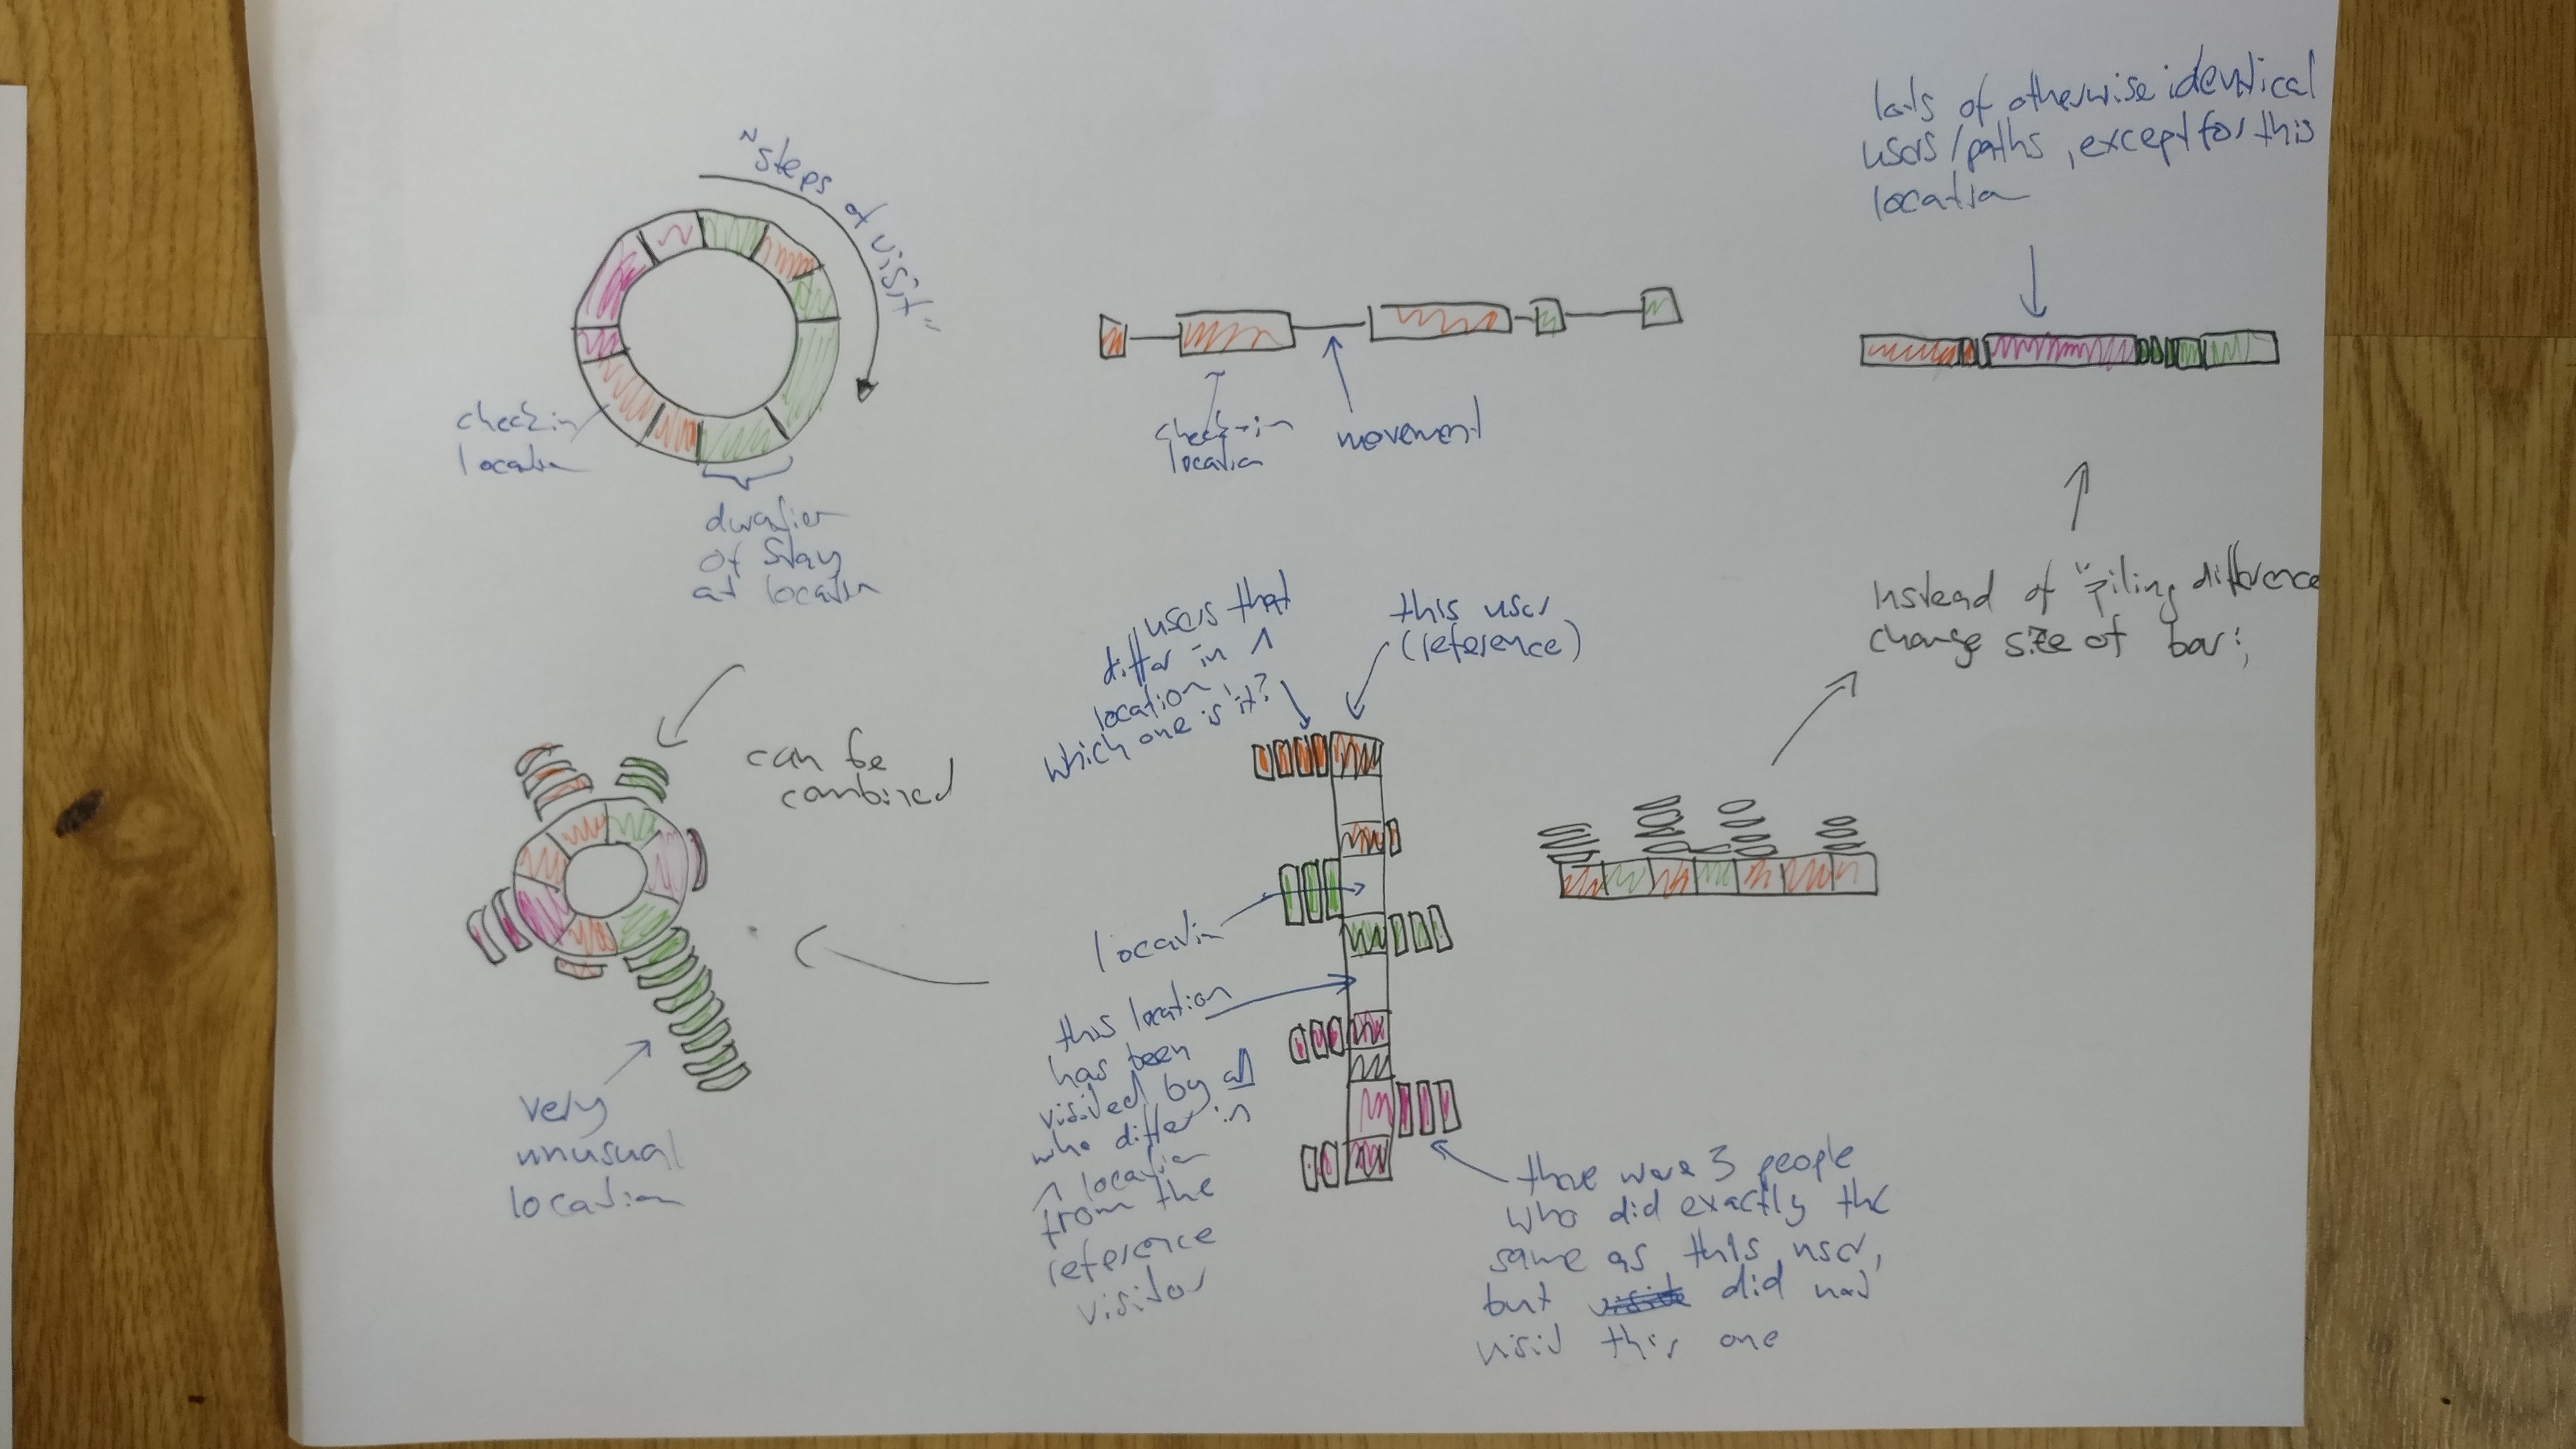 "steps of visit"
check in
location
duration
of stay
at location
check-in
location
movement
lots of otherwise identical
users/paths, except for this
location
instead of "piling difference
change size of bar:
can be
combined
very
unusual
location
users that
differ in 1
location,
which one is it?
this user
(reference)
location
this location
has been
visited by all
who differ in
1 location
from the
reference
visitor
there were 3 people
who did exactly the
same as this user,
but did not
visit this one